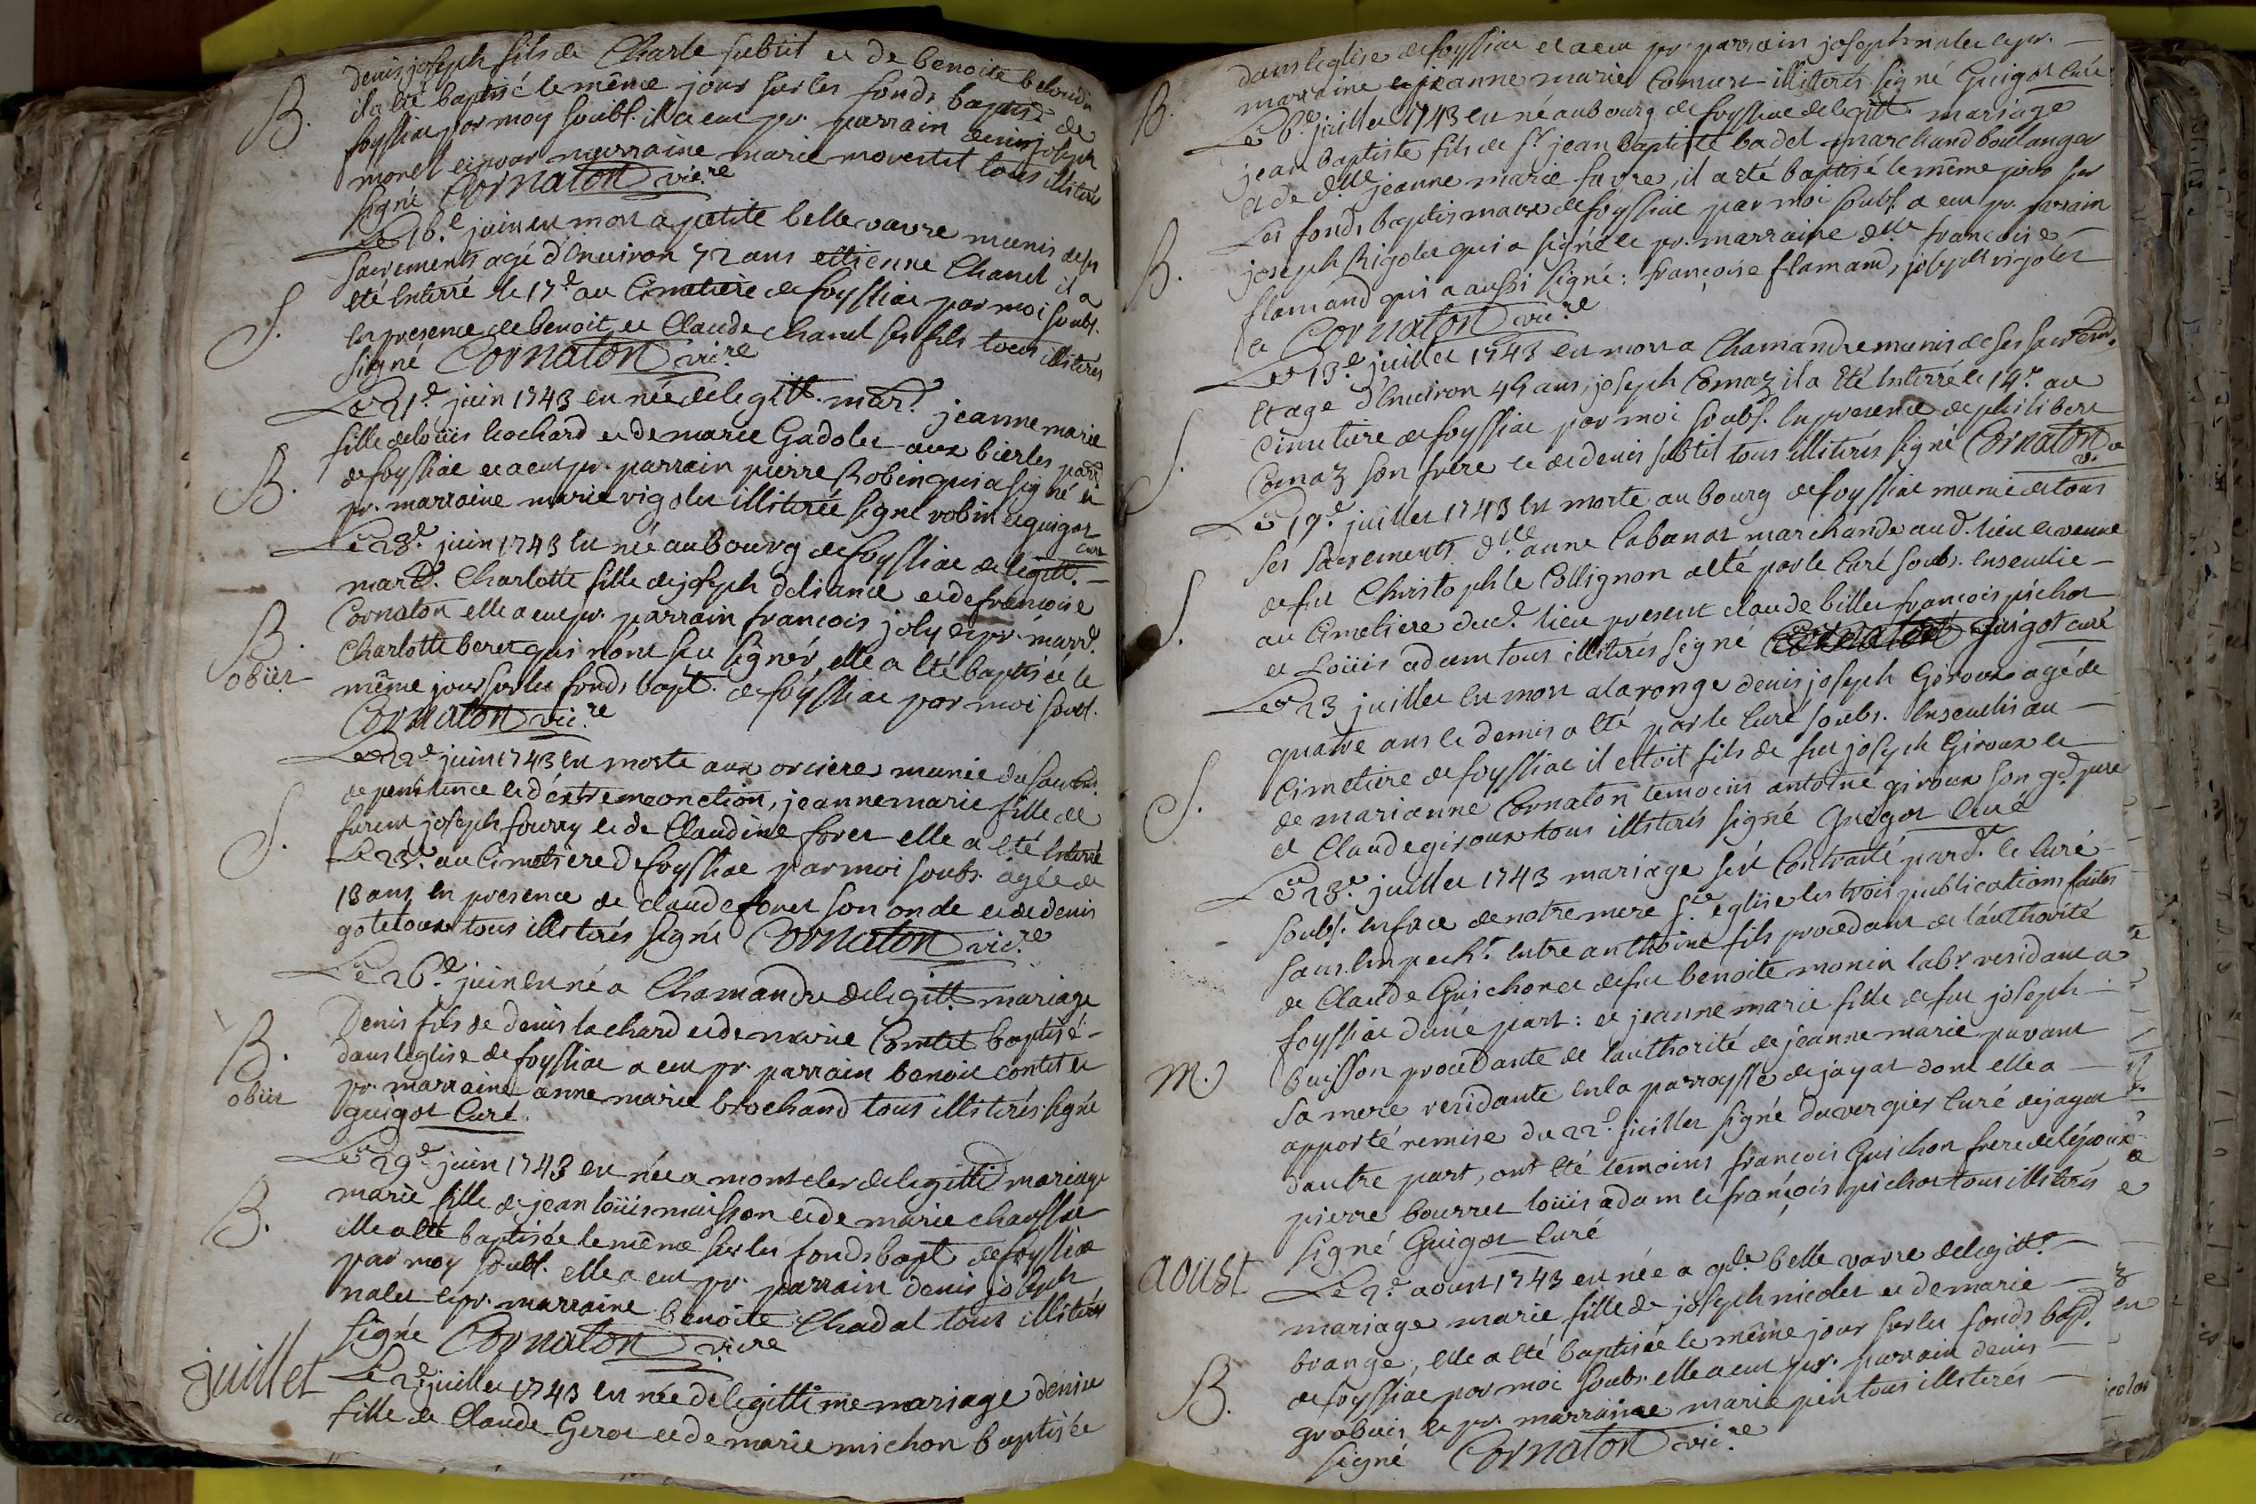 denis joseph fils de Charle subtit et de benoite
B.
il a été baptisé le même jour sur les fonds bapt. de
foyssiac par moy soubs. il a eu pr. parrain denis joseph
morel et pour marraine marie morestet tous illiterés
signé Cornaton vic.re
Le 16.e juin est mort a petite belle vavre munis de ses
sacrements agé d'Environ 72 ans ettienne Chanel il a
S.
été Enterré le 17.e au Cimetiere de foyssiac par moi soubs.
En presence de benoit et Claude Chanel ses fils tous illiterés
signé Cornaton vic.re
Le 21.e juin 1743 est née de legitt. mar.e jeanne marie
fille de loüis brochard et de marie Gadolet aux bierles
B.
de foyssiac et a eu pr. parrain pierre Robin qui a signé et
pr. marraine marie vigolet illiterée signé robin et guigot
curé
Le 28.e juin 1743 est née au bourg de foyssiac de legitt.
mar.e Charlotte fille de joseph deliance et de francoise
B.
Cornaton elle a eu pr. parrain francois joly et pr. marr.e
obiit
Charlotte beret qui n'ont sçu signér, elle a été baptisée le
même jour sur les fonds bapt. de foyssiac par moi soubs.
Cornaton vic.re
Le 22.e juin 1743 est morte aux orcieres munie du sacrem.
de penitence et d'extreme onction, jeanne marie fille de
S.
furent joseph fourry et de Claudine foret elle a été Enterré
Le 23.e au Cimetiere de foyssiac par moi soubs. agée de
13 ans, en presence de claude foret son oncle et de denis
gotetoux tous illiterés signé Cornaton vic.re
Le 26.e juin est né a Chamandre de legitt. mariage
B.
Denis fils de denis lachard et de marie Comtet baptisé
obiit
dans l'eglise de foyssiac a eu pr. parrain benoit contet et
pr. marraine anne marie brochand tous illiterés signé
guigot Curé.
Le 29.e juin 1743 est née a montcler de legitti.e mariage
B.
marie fille de jean loüis maisson et de marie chanssat
elle a été baptisée le même sur les fonds bapt. de foyssiac
par moy soubs. elle a eu pr. parrain denis joseph
nalet et pr. marraine benoite Chadal tous illiterés
signé Cornaton vic.re
juillet
Le 2.e juillet 1743 est née de legittime mariage denise
fille de Claude Geroe et de marie michon baptisée
dans l'eglise de foyssiac et a eu pr. parrain joseph nalet et pr.
B.
marraine jeanne marie Comar illiterés signé Guigot Curé
Le 6.e juillet 1743 est né au bourg de foyssiac de legitt. mariage
jean baptiste fils de s.r jean baptiste badel marchand boulanger
et de d.lle jeanne marie favre, il a été baptisé le même jour sur
B.
Les fonds baptismaux de foyssiac par moi soubs. a eu pr. parrain
joseph Rigolet qui a signé et pr. marraine d.lle francoise
flamand qui a aussi signé: françoise flamand, joseph rigolet
et Cornaton vic.re
Le 13.e juillet 1743 est mort a Chamandre munis de ses sacrem.
Et agé d'Environ 45 ans, joseph Comaz il a été Enterré le 14.e au
S.
Cimetiere de foyssiac par moi soubs. En presence de philibert
Comaz son frere et de denis subtil tous illiterés signé Cornaton v.
Le 19.e juillet 1743 Est morte au bourg de foyssiac munie de tous
ses sacrements d.lle anne Cabanat marchande aud. lieu et veuve
S.
de fut Christophle Collignon a été par le Curé soubs. Ensevelie
au Cimetiere dud. lieu present claude billet françois pichot
et Loüis adam tous illiterés signé Guigot curé
Le 23 juillet est mort a la ronge denis joseph Giroux agé de
quatre ans et demis a été par le Curé soubs. Ensevelis au
S.
Cimetiere de foyssiac il ettoit fils de fut joseph Giroux et
de marianne Cornaton temoins antoine giroux son g.d pere
et Claude giroux tous illiterés signé Guigot Curé
Le 28.e juillet 1743 mariage fut Contracté pard. le Curé
soubs. En face de notre mere s.te eglise les trois publications faites
sans Empech.t Entre anthoine fils procedant de l'authorité
de Claude Guichon et de fut benoite monin lab.r residant a
foyssiac d'une part: et jeanne marie fille de fut joseph
M.
buisson procedante de l'authorité de jeanne marie pavant
sa mere residante en la parroysse de jayat dont elle a
apporté remise du 22.e juillet signé duvergier Curé de jayat
d'autre part, ont été temoins francois Guichon frere de l'epoux
pierre bourret loüis adam et françois pichot tous illiterés
signé Guigot Curé
aoust
Le 2.e aoust 1743 est née a g.de belle vavre de legitt.
mariage marie fille de joseph nicolet et de marie
brange, elle a été baptisée le même jour sur les fonds bapt.
B.
de foyssiac par moi soubs. elle a eut pr. parrain denis
grobuis et pr. marraine marie pin tous illiterés
signé Cornaton vic.re